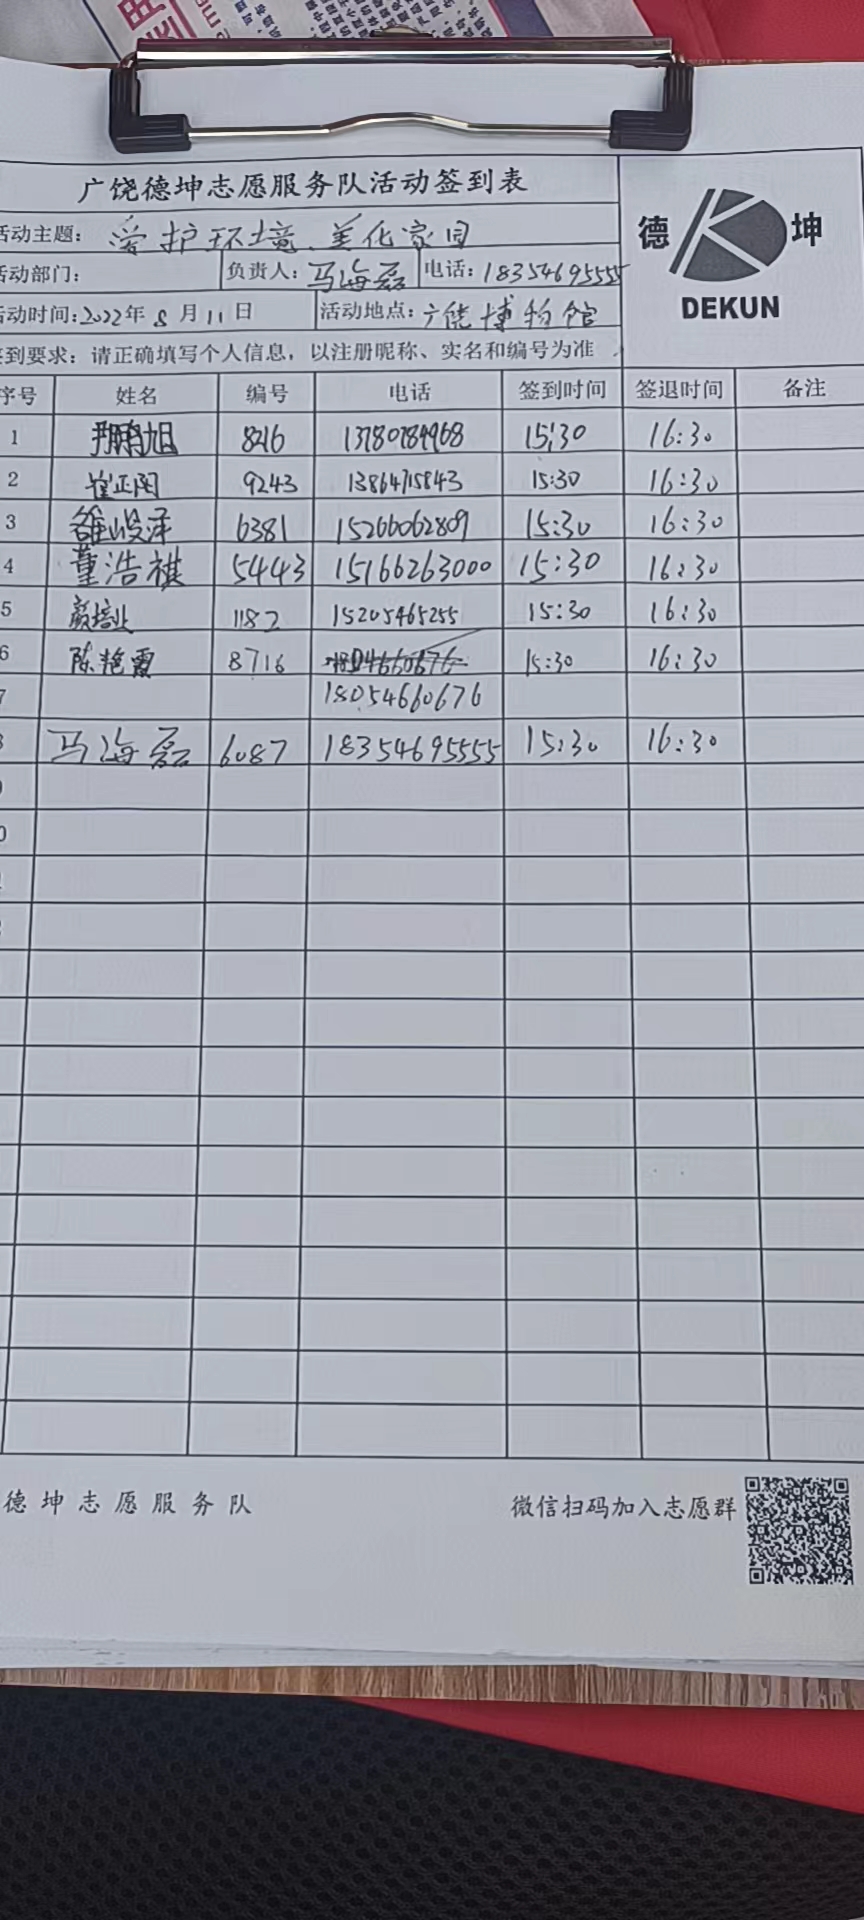 广饶德坤志愿服务队活动签到表
德 坤
DEKUN
活动主题：爱护环境、美化家园
活动部门： 负责人：马海磊 电话：18354695555
活动时间：2022年8月11日 活动地点：广饶博物馆
签到要求：请正确填写个人信息，以注册昵称、实名和编号为准
序号 姓名 编号 电话 签到时间 签退时间 备注
1 鹏旭 8216 13780784968 15:30 16:30
2 崔正阳 9243 13864715843 15:30 16:30
3 6381 15266062809 15:30 16:30
4 董浩祺 5443 15166263000 15:30 16:30
5 颜培业 1182 15205465255 15:30 16:30
6 陈艳霞 8716 15:30 16:30
7 18054660676
8 马海磊 6087 18354695555 15:30 16:30
德坤志愿服务队 微信扫码加入志愿群